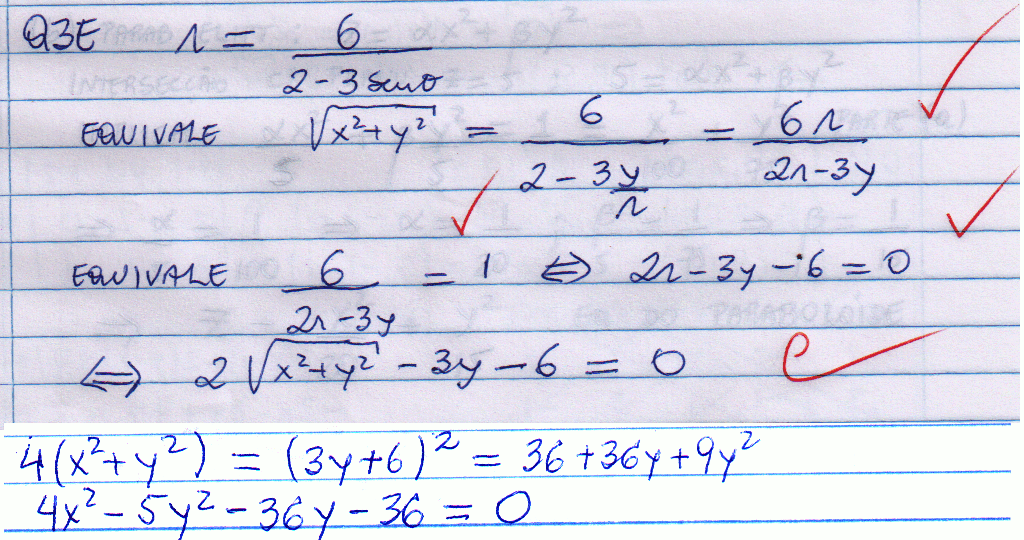 Q3E r = 6 / (2 - 3 senθ)
EQUIVALE √(x² + y²) = 6 / (2 - 3y/r) = 6r / (2r - 3y)
EQUIVALE 6 / (2r - 3y) = 1 ⇔ 2r - 3y - 6 = 0
⇔ 2√(x² + y²) - 3y - 6 = 0 C
4(x² + y²) = (3y + 6)² = 36 + 36y + 9y²
4x² - 5y² - 36y - 36 = 0